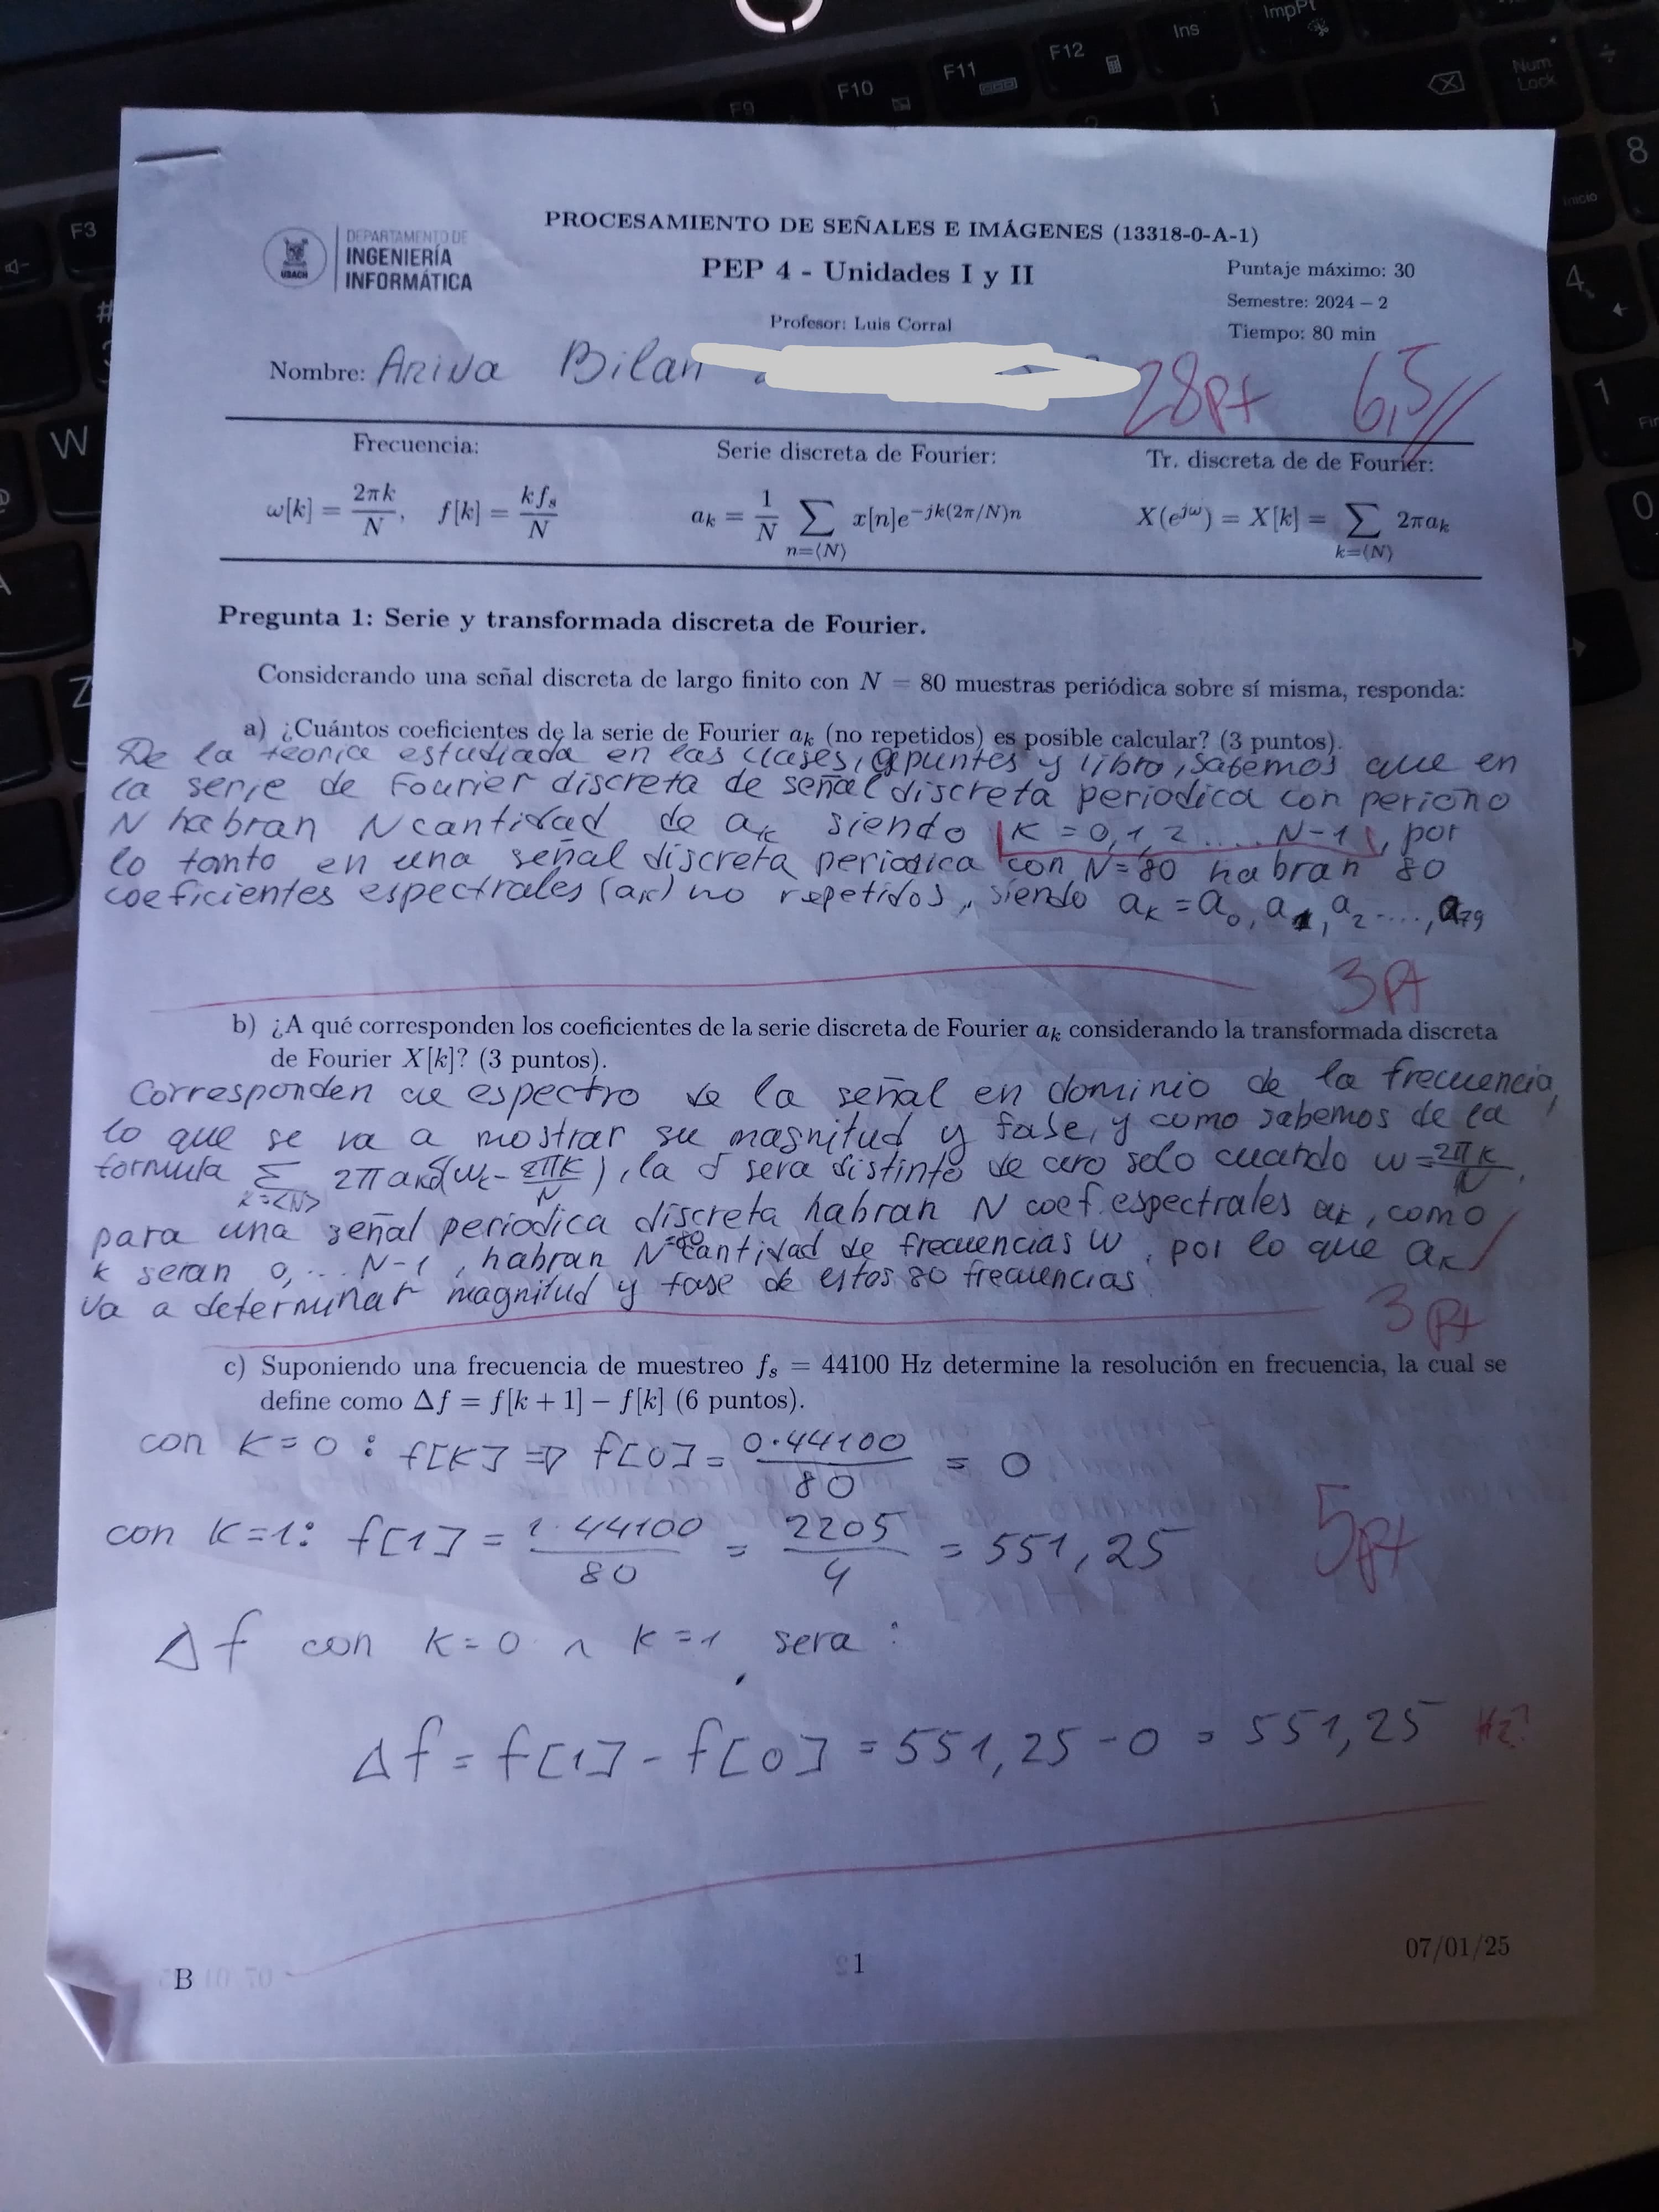 PROCESAMIENTO DE SEÑALES E IMÁGENES (13318-0-A-1)
DEPARTAMENTO DE
INGENIERÍA
INFORMÁTICA
USACH
PEP 4 - Unidades I y II
Puntaje máximo: 30
Semestre: 2024 – 2
Tiempo: 80 min
Profesor: Luis Corral
Nombre: Arina Bilan
28pt 6,5//
Frecuencia: Serie discreta de Fourier: Tr. discreta de de Fourier:
ω[k] = 2πk/N, f[k] = kfₛ/N aₖ = 1/N ∑ n=⟨N⟩ x[n]e^−jk(2π/N)n X(e^jω) = X[k] = ∑ k=⟨N⟩ 2πaₖ
Pregunta 1: Serie y transformada discreta de Fourier.
Considerando una señal discreta de largo finito con N = 80 muestras periódica sobre sí misma, responda:
a) ¿Cuántos coeficientes de la serie de Fourier aₖ (no repetidos) es posible calcular? (3 puntos).
De la teoria estudiada en las clases, apuntes y libro, sabemos que en
la serie de Fourier discreta de señal discreta periodica con periono
N habran N cantidad de aₖ siendo K = 0,1,2....N-1, por
lo tanto en una señal discreta periodica con N=80 habran 80
coeficientes espectrales (aₖ) no repetidos, siendo aₖ = a₀, a₁, a₂...., a₇₉
3pt
b) ¿A qué corresponden los coeficientes de la serie discreta de Fourier aₖ considerando la transformada discreta
de Fourier X[k]? (3 puntos).
Corresponden al espectro de la señal en dominio de la frecuencia,
lo que se va a mostrar su magnitud y fase, y como sabemos de la
formula ∑ k=<N> 2π aₖδ(ω - 2πk/N), la δ sera distinto de cero solo cuando ω = 2πk/N,
para una señal periodica discreta habran N coef. espectrales aₖ, como
k seran 0,... N-1, habran N=80 cantidad de frecuencias ω, por lo que aₖ
va a determinar magnitud y fase de estos 80 frecuencias
3pt
c) Suponiendo una frecuencia de muestreo fₛ = 44100 Hz determine la resolución en frecuencia, la cual se
define como Δf = f[k + 1] − f[k] (6 puntos).
con K=0: f[K] => f[0] = 0·44100/80 = 0
con K=1: f[1] = 1·44100/80 = 2205/4 = 551,25
5pt
Δf con K=0 ∧ K=1 sera:
Δf = f[1] - f[0] = 551,25 - 0 = 551,25 Hz?
B 1 07/01/25
F3
F9
F10
F11
F12
Ins
ImpPt
Num
Lock
W
Z
8
4
Inicio
1
0